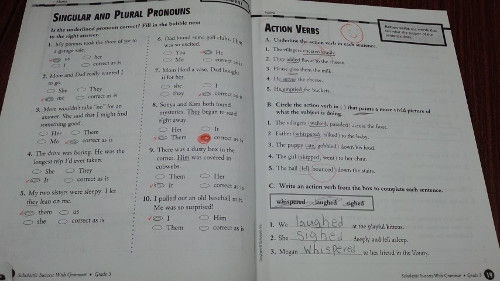 SINGULAR AND PLURAL PRONOUNS
Is the underlined pronoun correct? Fill in the bubble next
to the right answer.
1. My parents took the three of me to
a garage sale.
us he
I correct as is
2. Mom and Dad really wanted I
to go.
She They
me correct as is
3. Mom wouldn't take "no" for an
answer. She said that I might find
something good.
Her Them
He correct as is
4. The drive was boring. He was the
longest trip I'd ever taken.
She They
It correct as is
5. My two sisters were sleepy. I let
they lean on me.
them us
she correct as is
6. Dad found some golf clubs.
was so excited.
You He
Me correct as is
7. Mom liked a vase. Dad bought
it for her.
she I
they correct as is
8. Sonya and Kim both found
mysteries. They began to read
right away.
Her It
Them correct as is
9. There was a dusty box in the
corner. Him was covered in
cobwebs.
Them Her
It correct as is
10. I pulled out an old baseball mitt.
Me was so surprised!
I Him
Them correct as is
Scholastic Success With Grammar • Grade 3
ACTION VERBS
A. Underline the action verb in each sentence.
1. The villagers
2. They added flavor to the cheese.
3. Please give them the milk.
4. He the cheese.
5. Hungry the buckets.
B. Circle the action verb in ( ) that paints a more vivid picture of
what the subject is doing.
1. The villagers (walked, paraded) across the town.
2. Father (whispered, talked) to the baby.
3. The puppy (ate, gobbled) down his food.
4. The girl (skipped, went) to her chair.
5. The ball (fell, bounced) down the stairs.
C. Write an action verb from the box to complete each sentence.
whispered laughed sighed
1. We laughed at the playful kittens.
2. She sighed deeply and fell asleep.
3. Megan whispered to her friend in the library.
Scholastic Success With Grammar • Grade 3